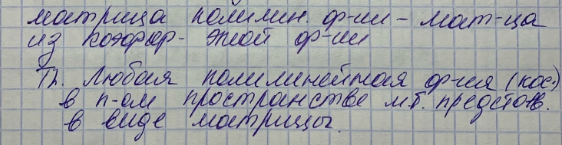 матрица полилин. ф-ии – мат-ца
из коэффр- этой ф-ии
Th. Любая полилинейная ф-ия (кос.)
в n-ом пространстве м.б. представ.
в виде матрицы.